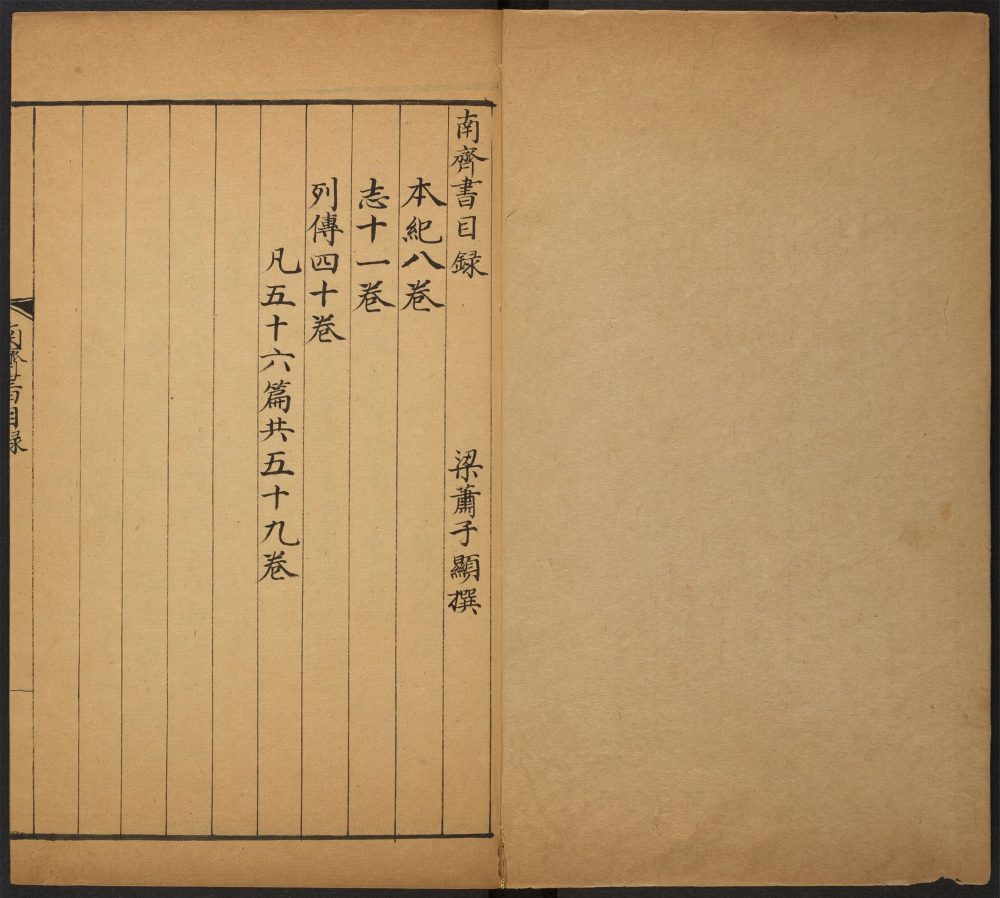 南齊書目録
梁蕭子顯撰
本紀八卷
志十一卷
列傳四十卷
凡五十六篇共五十九卷
南齊書目録